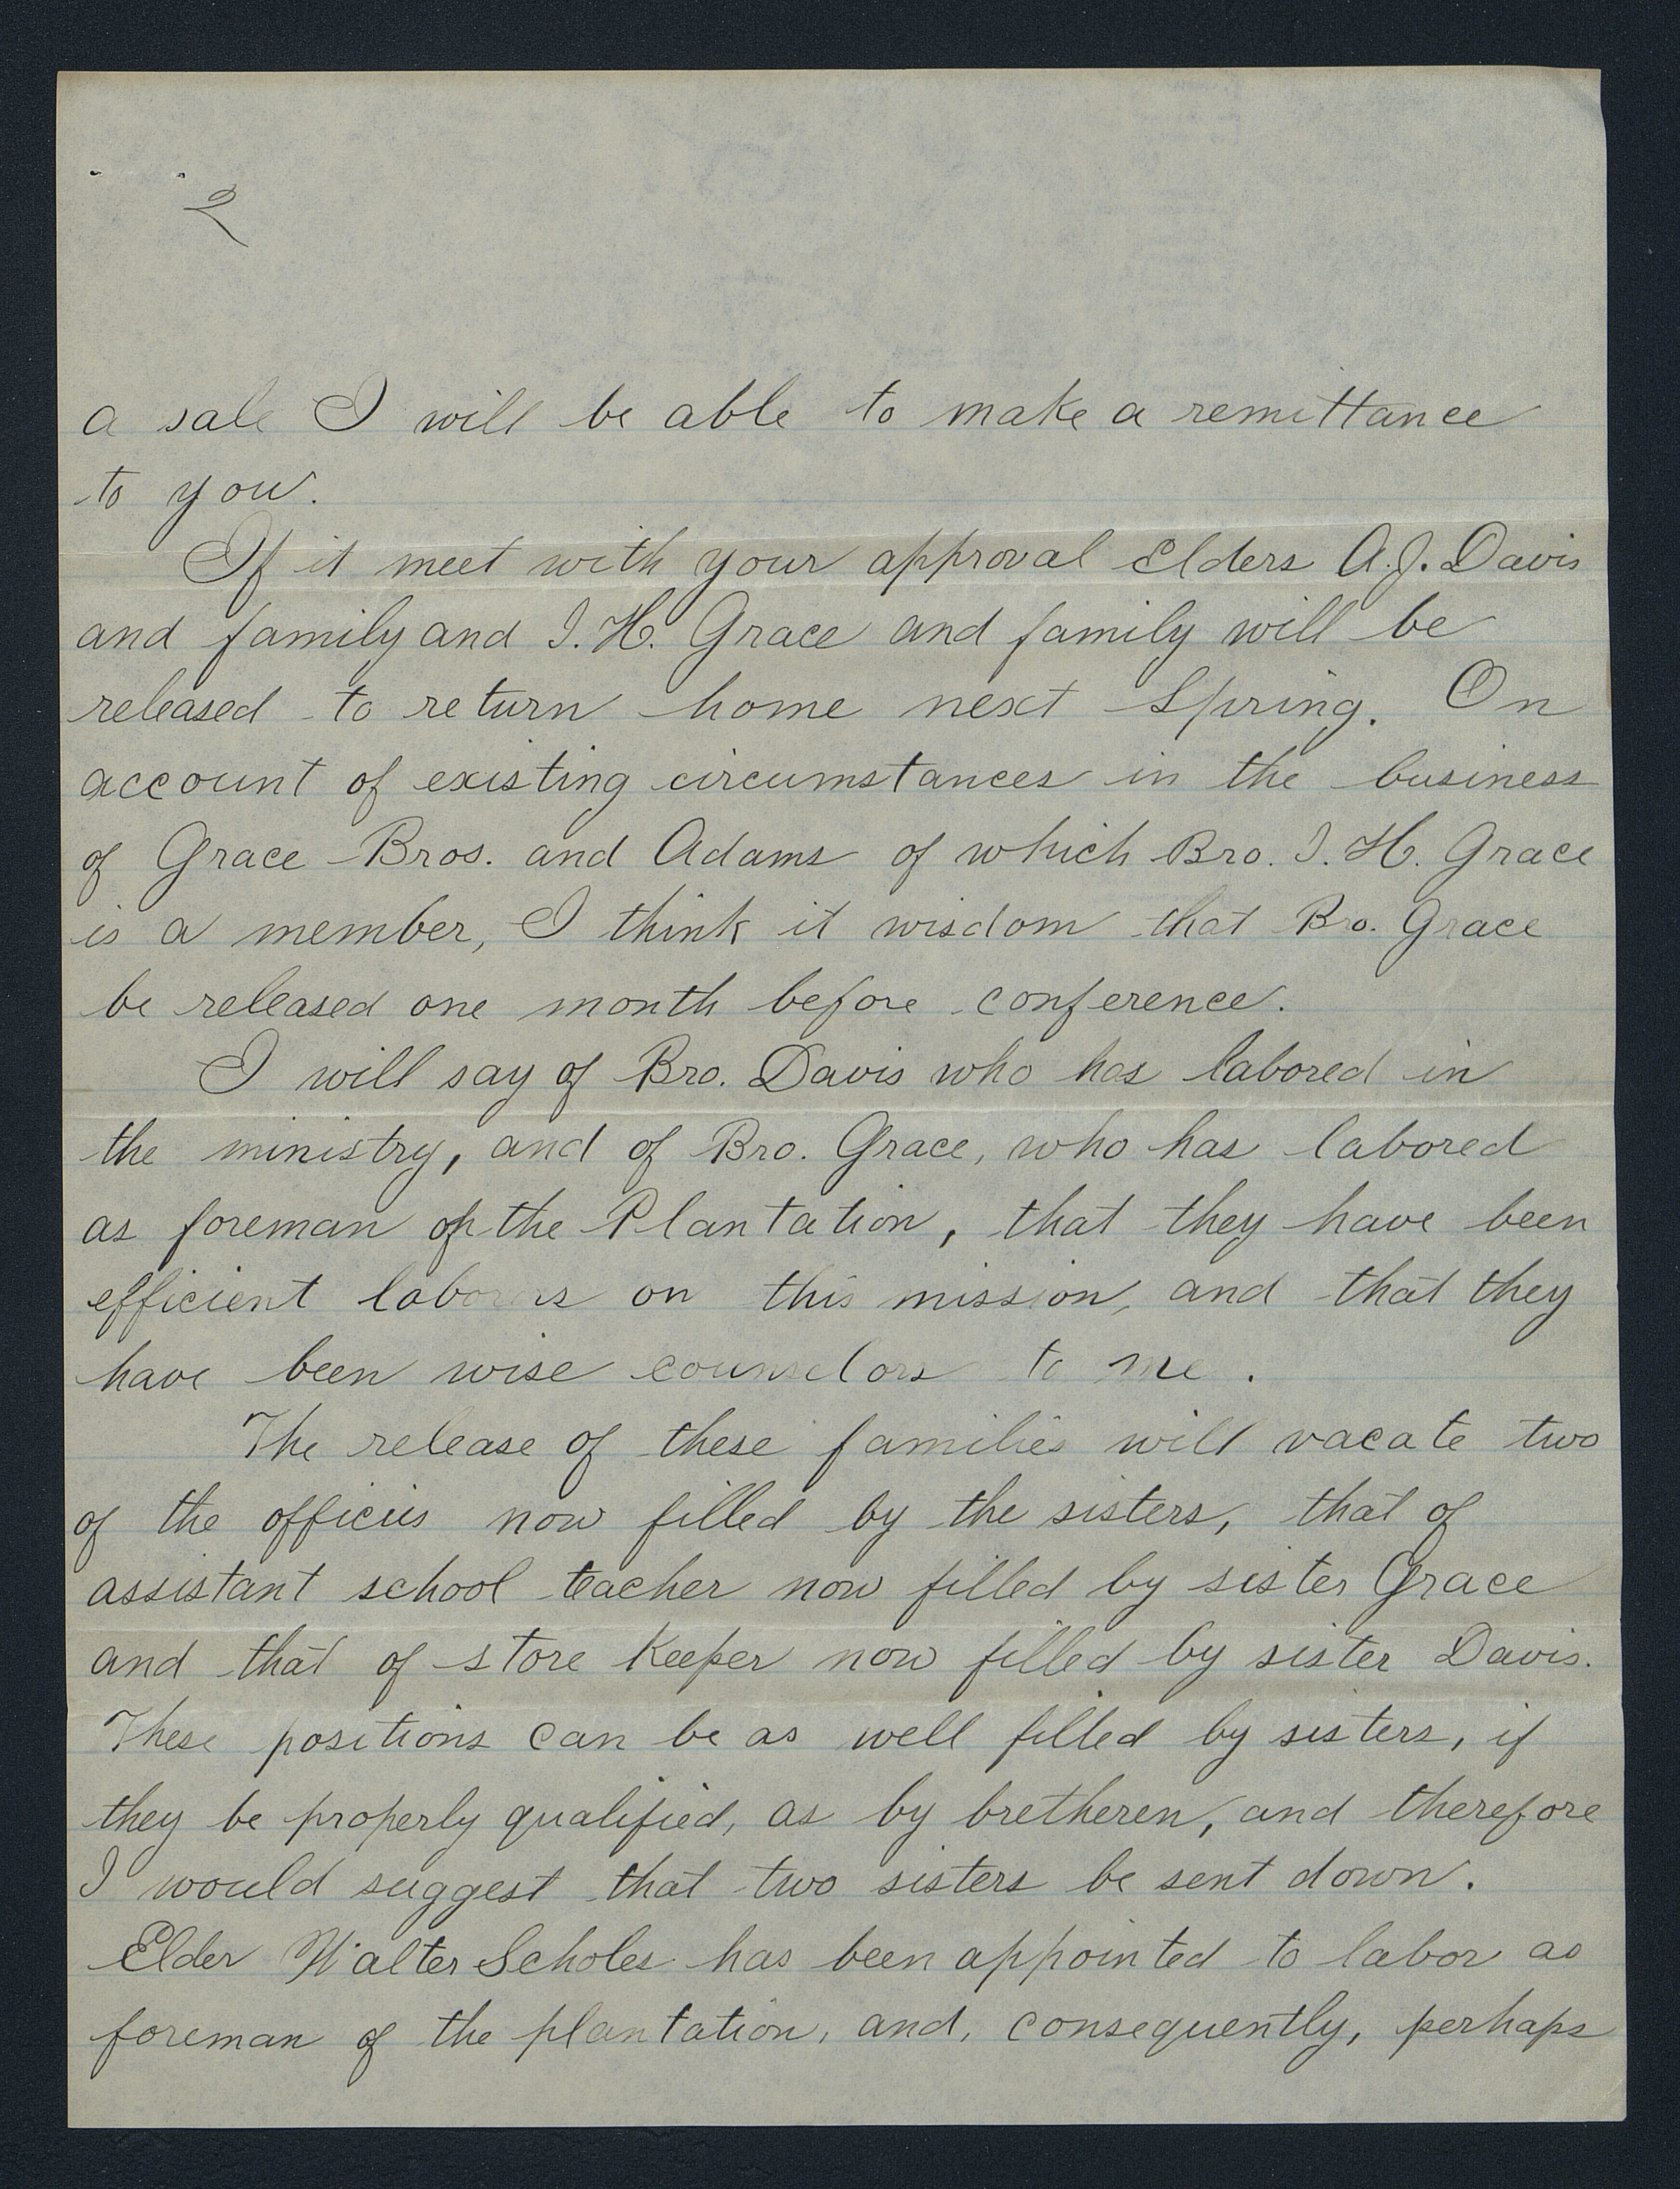 2
a sale I will be able to make a remittance
to you.
If it meet with your approval Elders A.J. Davis
and family and I. H. Grace and family will be
released to return home next Spring. On
account of existing circumstances in the business
of Grace Bros. and Adams of which Bro. I. H. Grace
is a member, I think it wisdom that Bro. Grace
be released one month before conference.
I will say of Bro. Davis who has labored in
the ministry, and of Bro. Grace, who has labored
as foreman of the Plantation, that they have been
efficient laborers on this mission, and that they
have been wise counselors to me.
The release of these families will vacate two
of the officies now filled by the sisters, that of
assistant school teacher now filled by sister Grace
and that of store Keeper now filled by sister Davis.
These positions can be as well filled by sisters, if
they be properly qualified, as by bretheren, and therefore
I would suggest that two sisters be sent down.
Elder Walter Scholes has been appointed to labor as
foreman of the plantation, and, consequently, perhaps